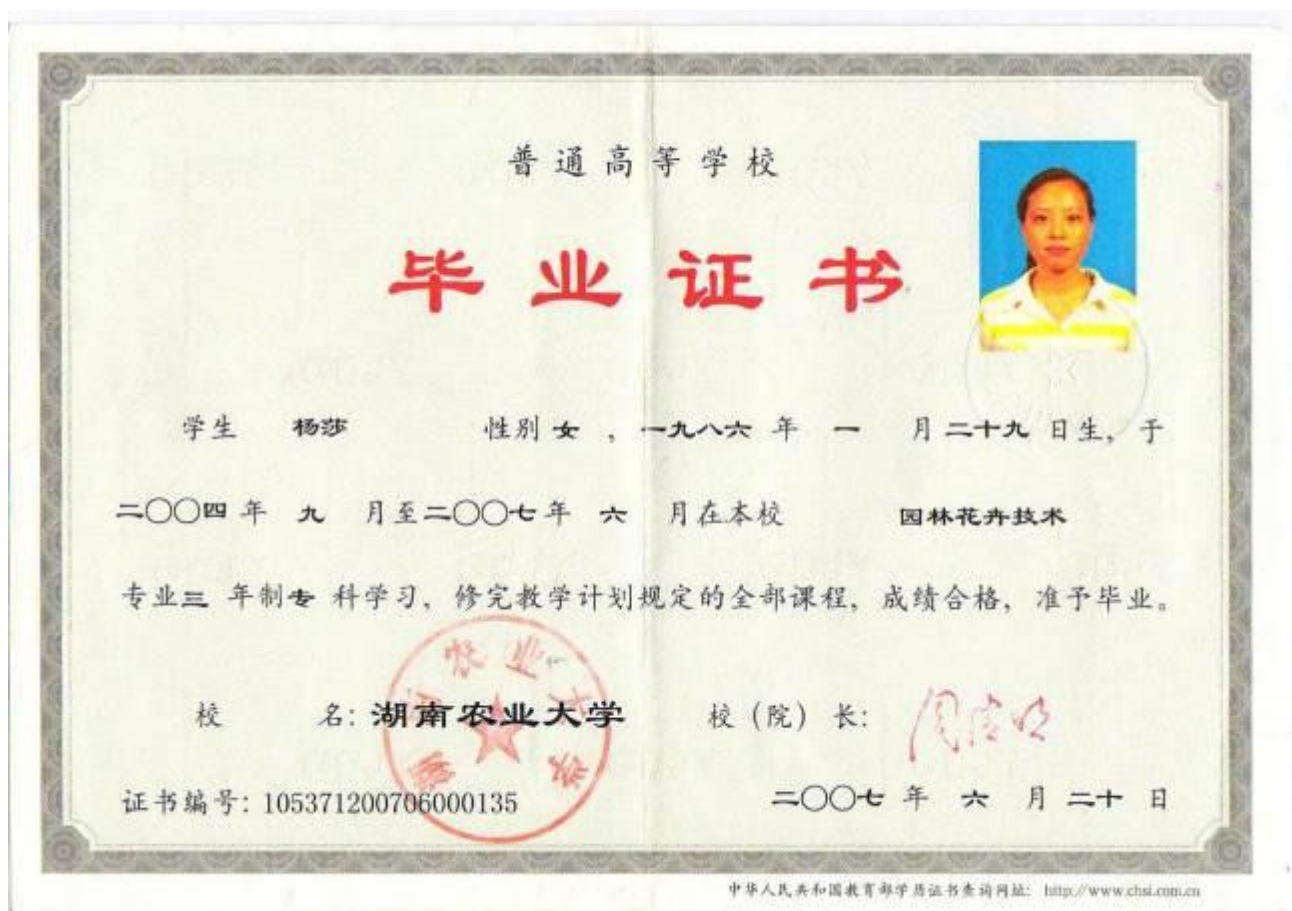 普通高等学校
毕业证书
学生 杨莎 性别 女 ，一九八六 年 一 月 二十九 日生，于
二〇〇四 年 九 月至二〇〇七 年 六 月在本校 园林花卉技术
专业三 年制专 科学习，修完教学计划规定的全部课程，成绩合格，准予毕业。
校 名：湖南农业大学 校（院）长：
证书编号：105371200706000135 二〇〇七 年 六 月 二十 日
中华人民共和国教育部学历证书查询网址： http://www.chsi.com.cn